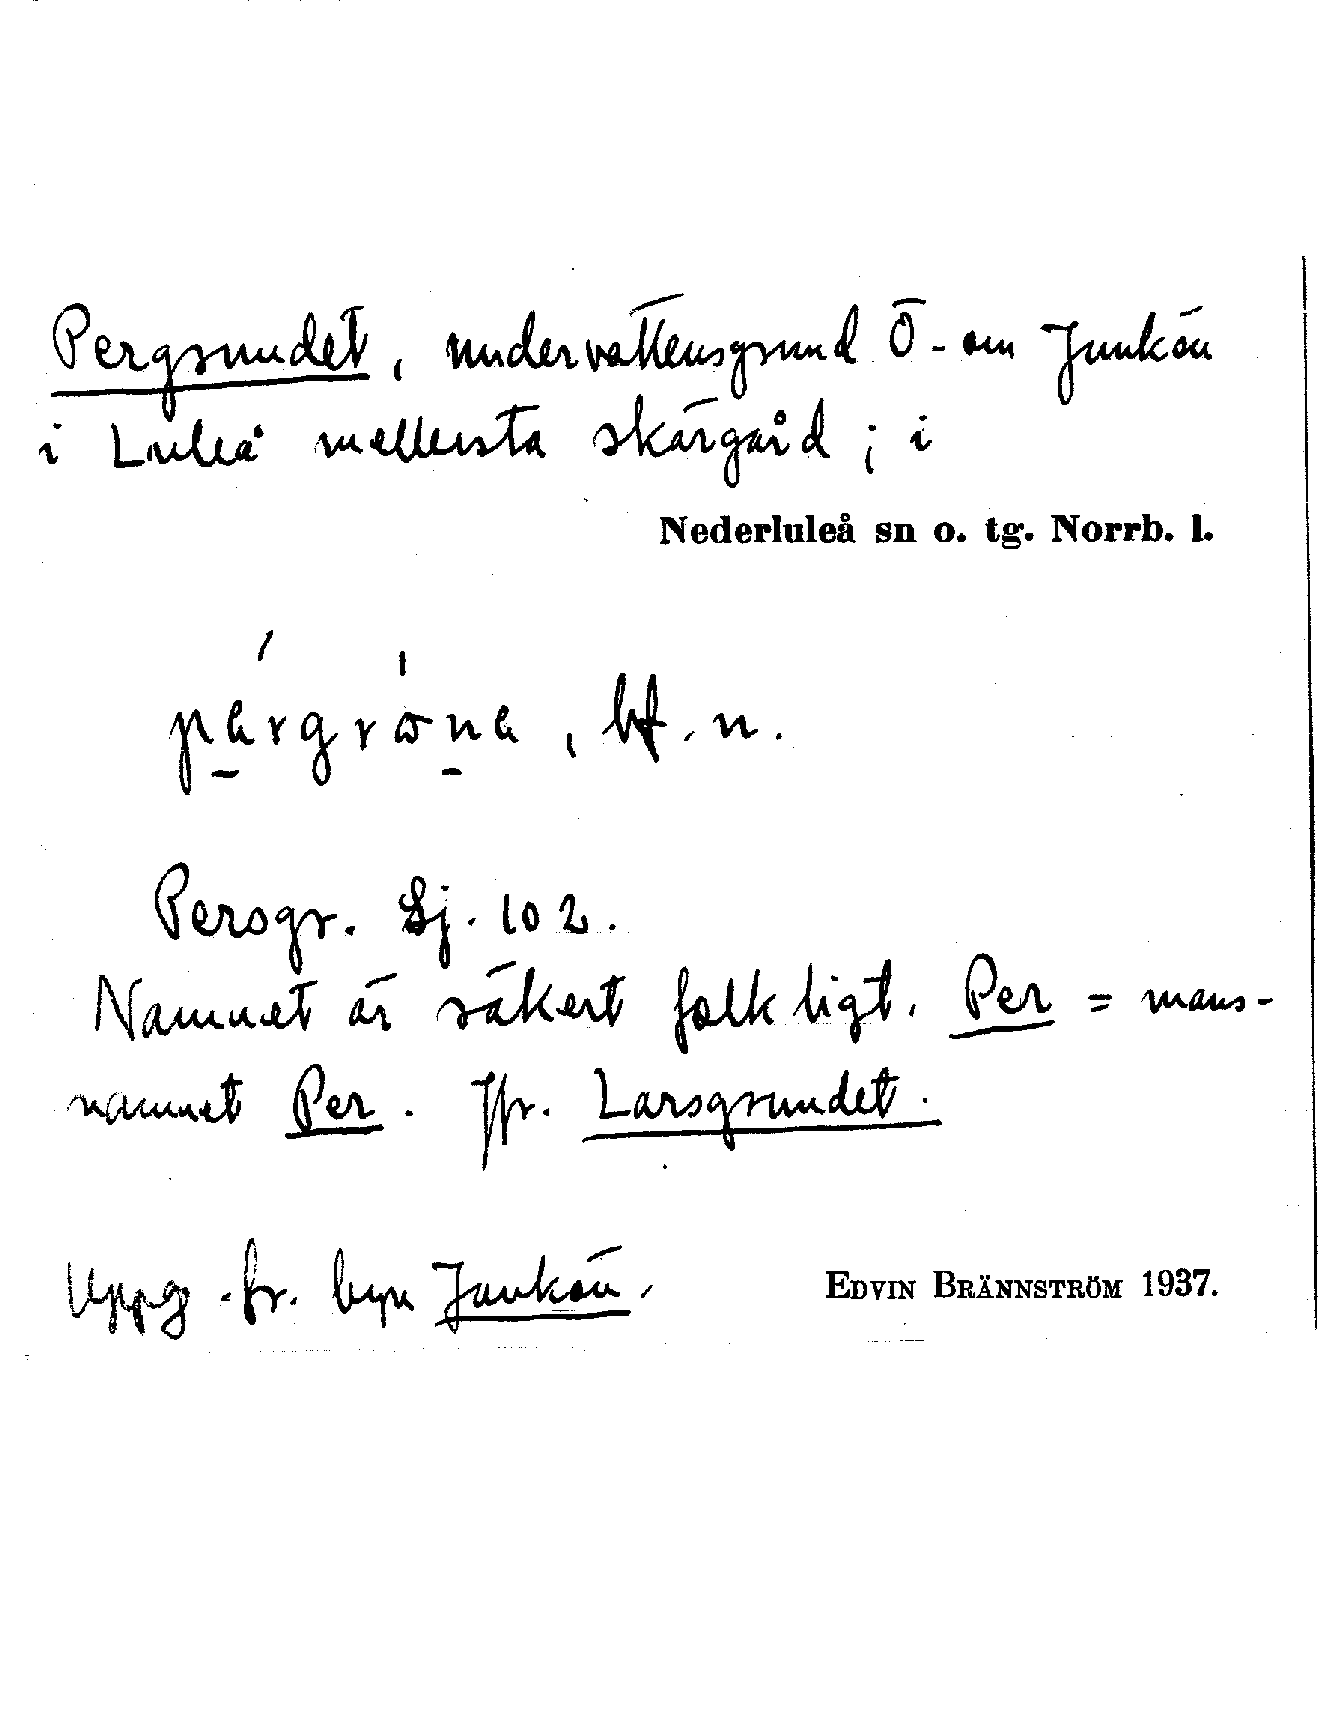 Pergrundet, undervattensgrund Ö-om Junkön
i Luleå mellersta skärgård; i
Nederluleå sn o. tg. Norrb. l.
bf. n.
Persgr. Sj. 102.
Namnet är säkert folkligt. Per = mans-
namnet Per. Jfr. Larsgrundet.
Uppg. fr. byn Junkön. EDVIN BRÄNNSTRÖM 1937.